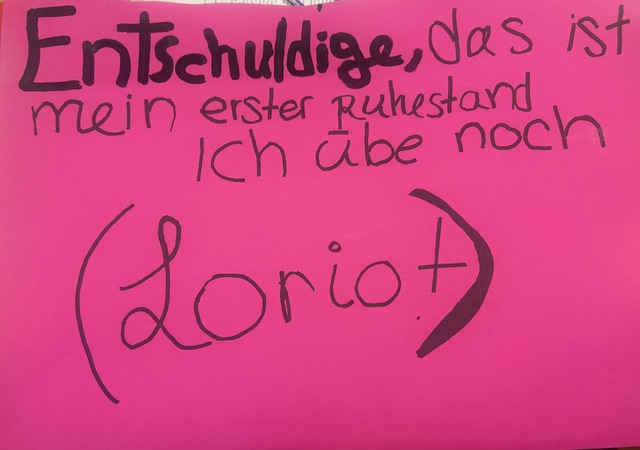 Entschuldige, das ist
mein erster Ruhestand
Ich übe noch
(Loriot)